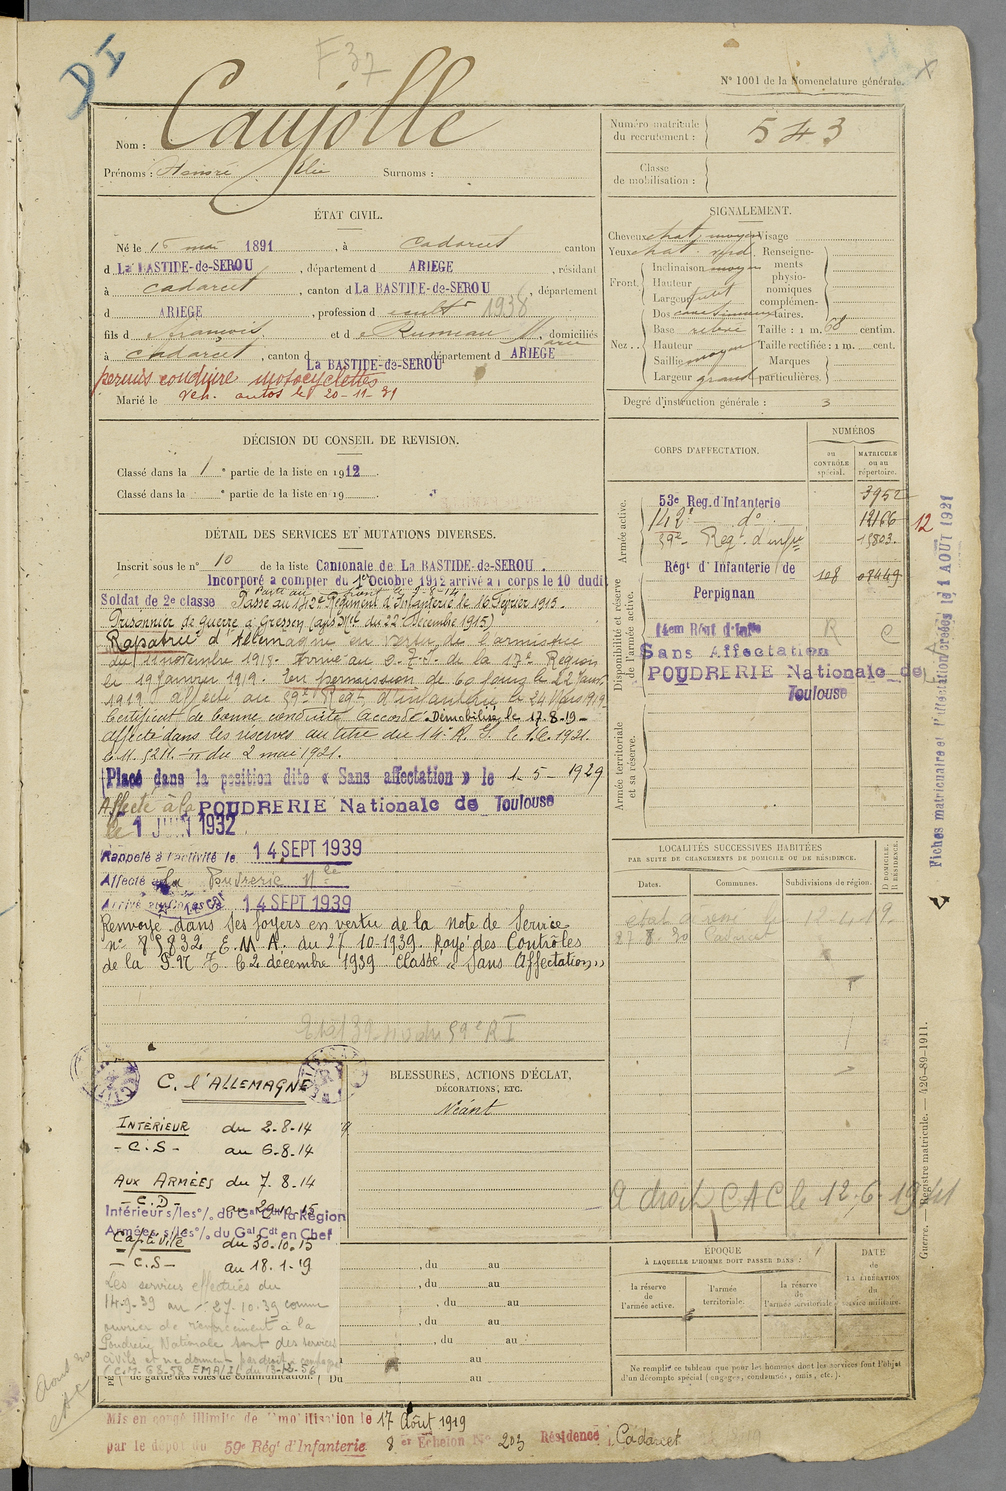 DI
F37
N° 1001 de la Nomenclature générale.
Nom : Caujolle
Prénoms : Honoré Élie Surnoms :
Numéro matricule du recrutement : 543
Classe de mobilisation :
ÉTAT CIVIL.
Né le 15 mai 1891, à Cadarcet canton
d La BASTIDE-de-SEROU, département d ARIEGE, résidant
à Cadarcet, canton d La BASTIDE-de-SEROU, département
d ARIEGE, profession d cultr 1938
fils d François et d Rumeau Marie domiciliés
à Cadarcet, canton d La BASTIDE-de-SEROU département d ARIEGE
permis conduire motocyclettes
Marié le
veh. autos le 20-11-31
SIGNALEMENT.
Cheveux chat. moyen Visage
Yeux chat. verd. Renseignements physionomiques complémentaires.
Front. Inclinaison moyen
Hauteur
Largeur
Nez. Dos
Base relevé Taille : 1 m. 68 centim.
Hauteur Taille rectifiée : 1 m. cent.
Saillie moyen Marques
Largeur grand particulières.
Degré d'instruction générale : 3
DÉCISION DU CONSEIL DE REVISION.
Classé dans la 1 e partie de la liste en 1912.
Classé dans la e partie de la liste en 19
DÉTAIL DES SERVICES ET MUTATIONS DIVERSES.
Inscrit sous le n° 10 de la liste Cantonale de La BASTIDE-de-SEROU.
Incorporé à compter du 1er Octobre 1912 arrivé au corps le 10 dudit
Parti au front le 7-8-14
Soldat de 2e classe Passé au 142e Régiment d'Infanterie le 16 Février 1915.
Prisonnier de guerre à Giessen (avis du 22 Décembre 1915)
Rapatrié d'Allemagne en vertu de l'armistice
du 11 novembre 1918. Arrivé au D.T.I. de la 17e Région
le 19 Janvier 1919. En permission de 60 jours le 22 Janv
1919. Affecté au 59e Régt d'infanterie le 24 Mars 1919.
Certificat de bonne conduite accordé. Démobilisé le 17.8.19-
Affecté dans les réserves au titre du 14e R.I.
du 2 mai 1921.
Placé dans la position dite « Sans affectation » le 1-5-1929
Affecté à la POUDRERIE Nationale de Toulouse
le 1 JUIN 1932
Rappelé à l'activité le 14 SEPT 1939
Affecté à la Poudrerie Nle
Arrivé 14 SEPT 1939
Renvoyé dans ses foyers en vertu de la note de Service
n° 85832 E.M.A. du 27.10.1939. Rayé des Contrôles
de la P.N.T. le 2 décembre 1939 Classé « Sans Affectation »
CORPS D'AFFECTATION.
NUMÉROS
au CONTRÔLE spécial.
MATRICULE ou au répertoire.
Armée active.
53e Reg. d'Infanterie 3952
142e do 12166
59e Régt d'infie 15803
Disponibilité et réserve de l'armée active.
Régt d'Infanterie de Perpignan 108 08449
14em Régt d'Inffie R C
Sans Affectation
POUDRERIE Nationale de Toulouse
Armée territoriale et sa réserve.
12
Fiches matriculaire et d'affectation créées le 1 AOUT 1921
LOCALITÉS SUCCESSIVES HABITÉES
PAR SUITE DE CHANGEMENTS DE DOMICILE OU DE RÉSIDENCE.
Dates. Communes. Subdivisions de région. D DOMICILE. R RÉSIDENCE.
27 8 30 Cadarcet
C. l'ALLEMAGNE
INTÉRIEUR du 2-8-14
- C.S - au 6-8-14
AUX ARMÉES du 7.8.14
- C.D - au 29.10.15
Intérieur s/les o/. du Gal Cdt la Région
Armées s/les o/. du Gal Cdt en Chef
Captivité du 30.10.15
- C.S - au 18.1.19
Les services effectués du
14-9-39 au 27-10-39 comme
ouvrier de renforcement à la
Poudrerie Nationale sont des services
civils et ne donnent pas droit
de garde des voies de communication. Du
BLESSURES, ACTIONS D'ÉCLAT,
DÉCORATIONS, ETC.
Néant
, du au
, du au
, du au
, du au
, du au
au
au
A droit CAC le 12.6.1941
ÉPOQUE
À LAQUELLE L'HOMME DOIT PASSER DANS :
la réserve de l'armée active.
l'armée territoriale.
la réserve de l'armée territoriale
DATE de LA LIBÉRATION du service militaire.
Ne remplir ce tableau que pour les hommes dont les services font l'objet d'un décompte spécial (engagés, condamnés, omis, etc.).
Guerre. — Registre matricule. — 426-89-1911.
Mis en congé illimité de démobilisation le 17 Août 1919
par le dépôt du 59e Rég' d'Infanterie 8 er Échelon N° 203 Résidence Cadarcet